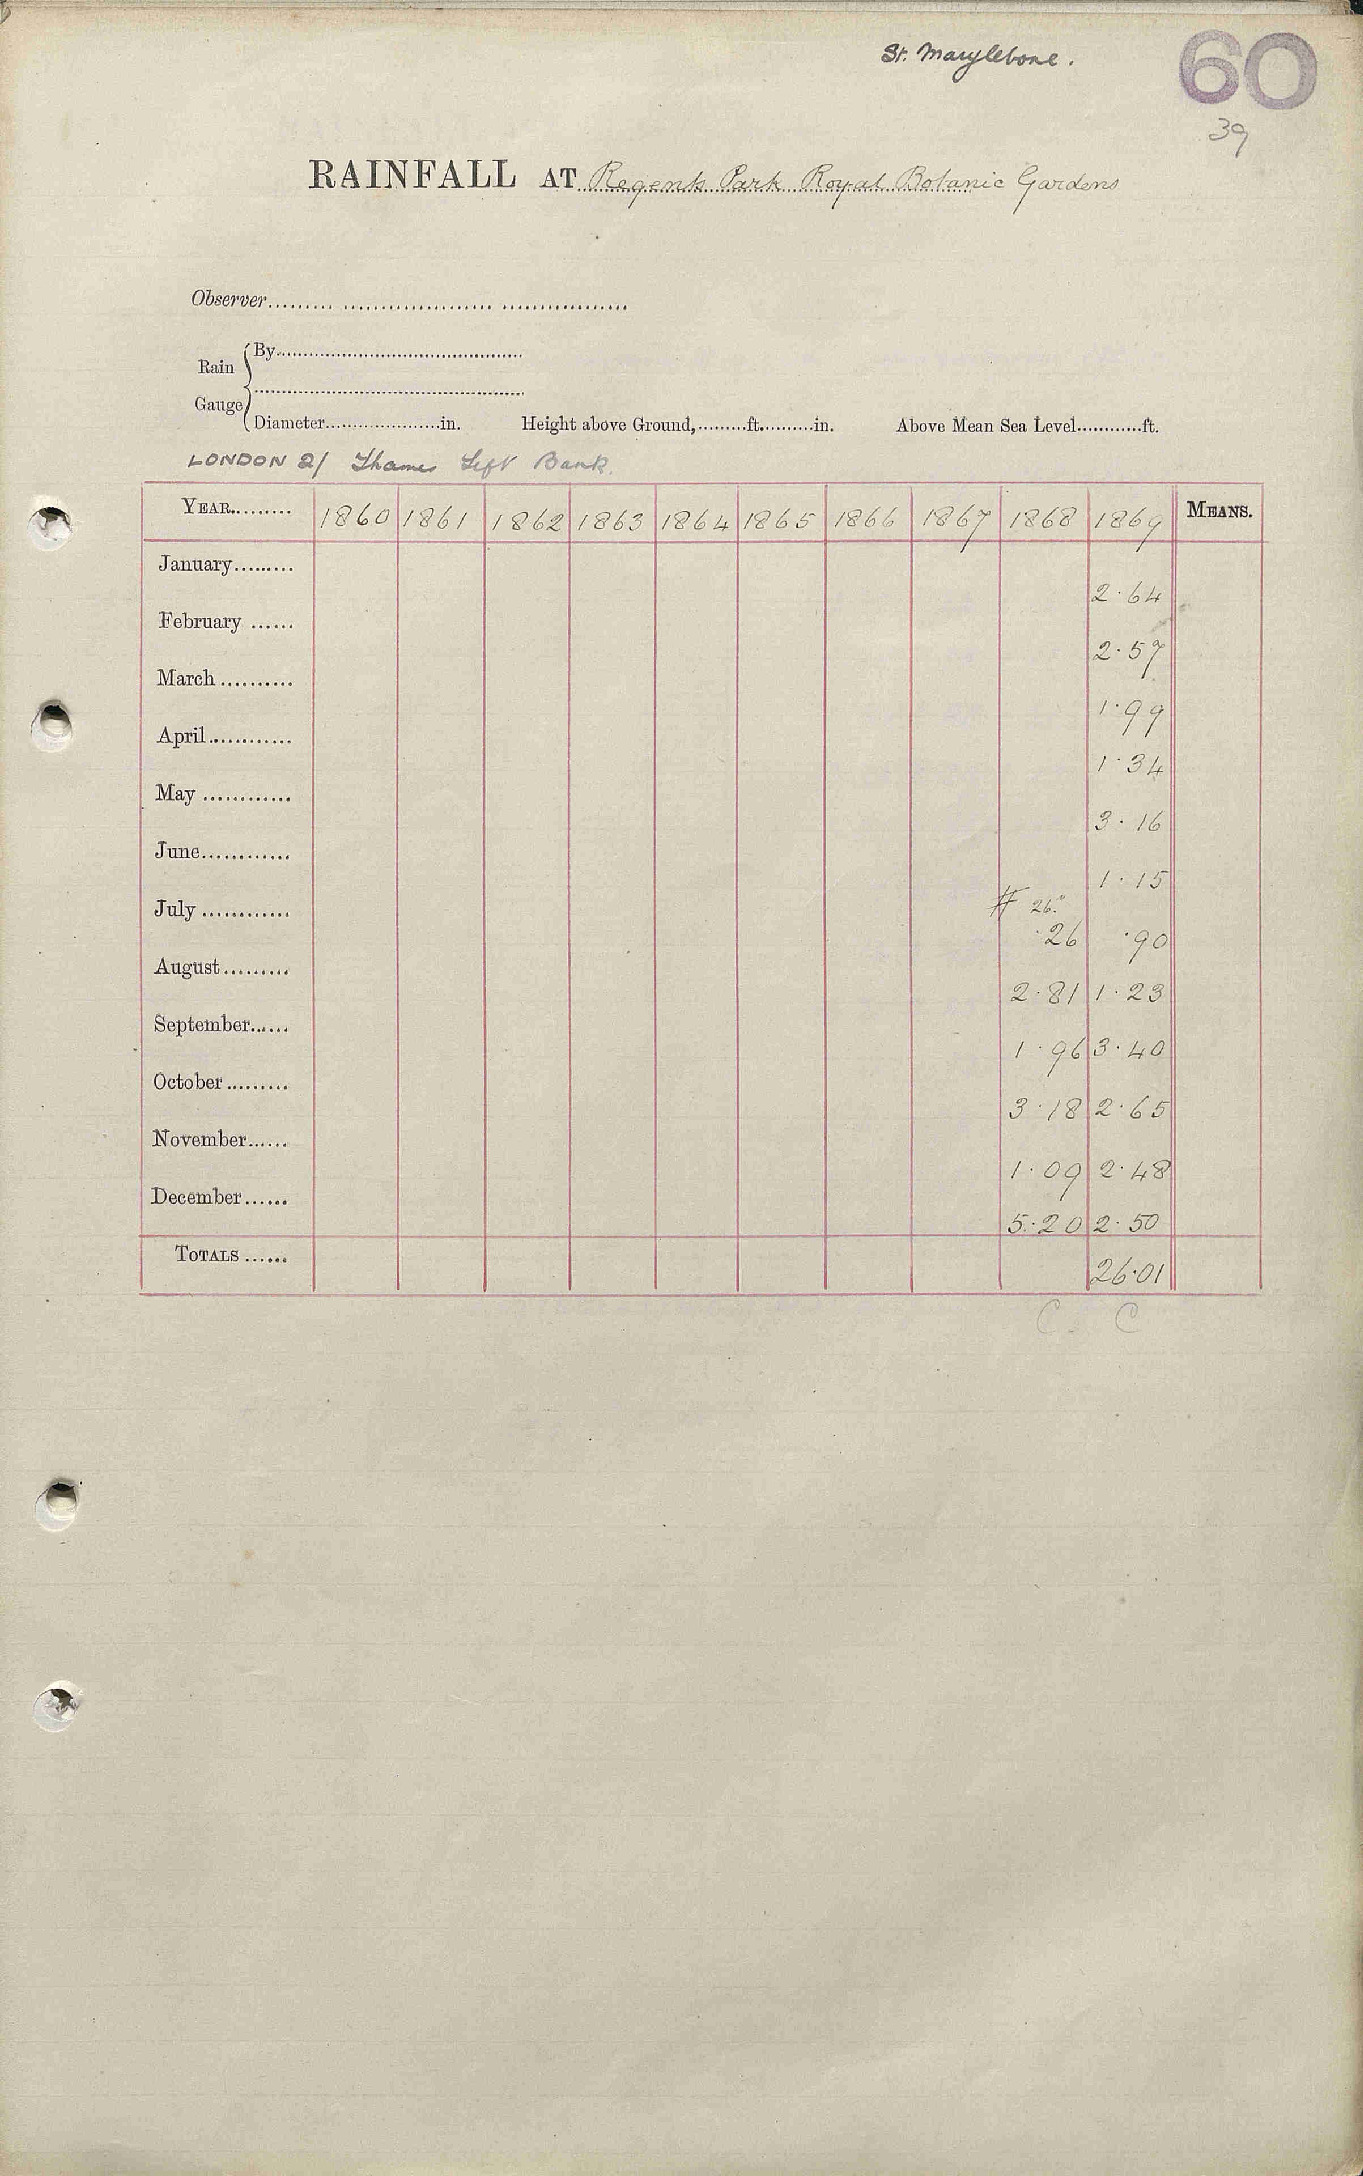 St. Marylebone.
60
39
RAINFALL AT Regents Park Royal Botanic Gardens
Observer
Rain Gauge
By
Diameter in. Height above Ground, ft. in. Above Mean Sea Level ft.
LONDON 2/ Thames Left Bank.
YEAR 1860 1861 1862 1863 1864 1865 1866 1867 1868 1869 MEANS.
January 2.64
February 2.57
March 1.99
April 1.34
May 3.16
June 1.15
# 26.
July .26 .90
August 2.81 1.23
September 1.96 3.40
October 3.18 2.65
November 1.09 2.48
December 5.20 2.50
TOTALS 26.01
C. C